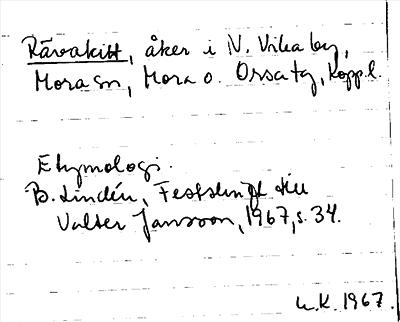 Rävakitt, åker i N. Vika by,
Mora sn, Mora o. Orsa tg, Kopp. l.
Etymologi.
B. Lindén, Festskrift till
Valter Jansson, 1967, s. 34.
L.K. 1967.